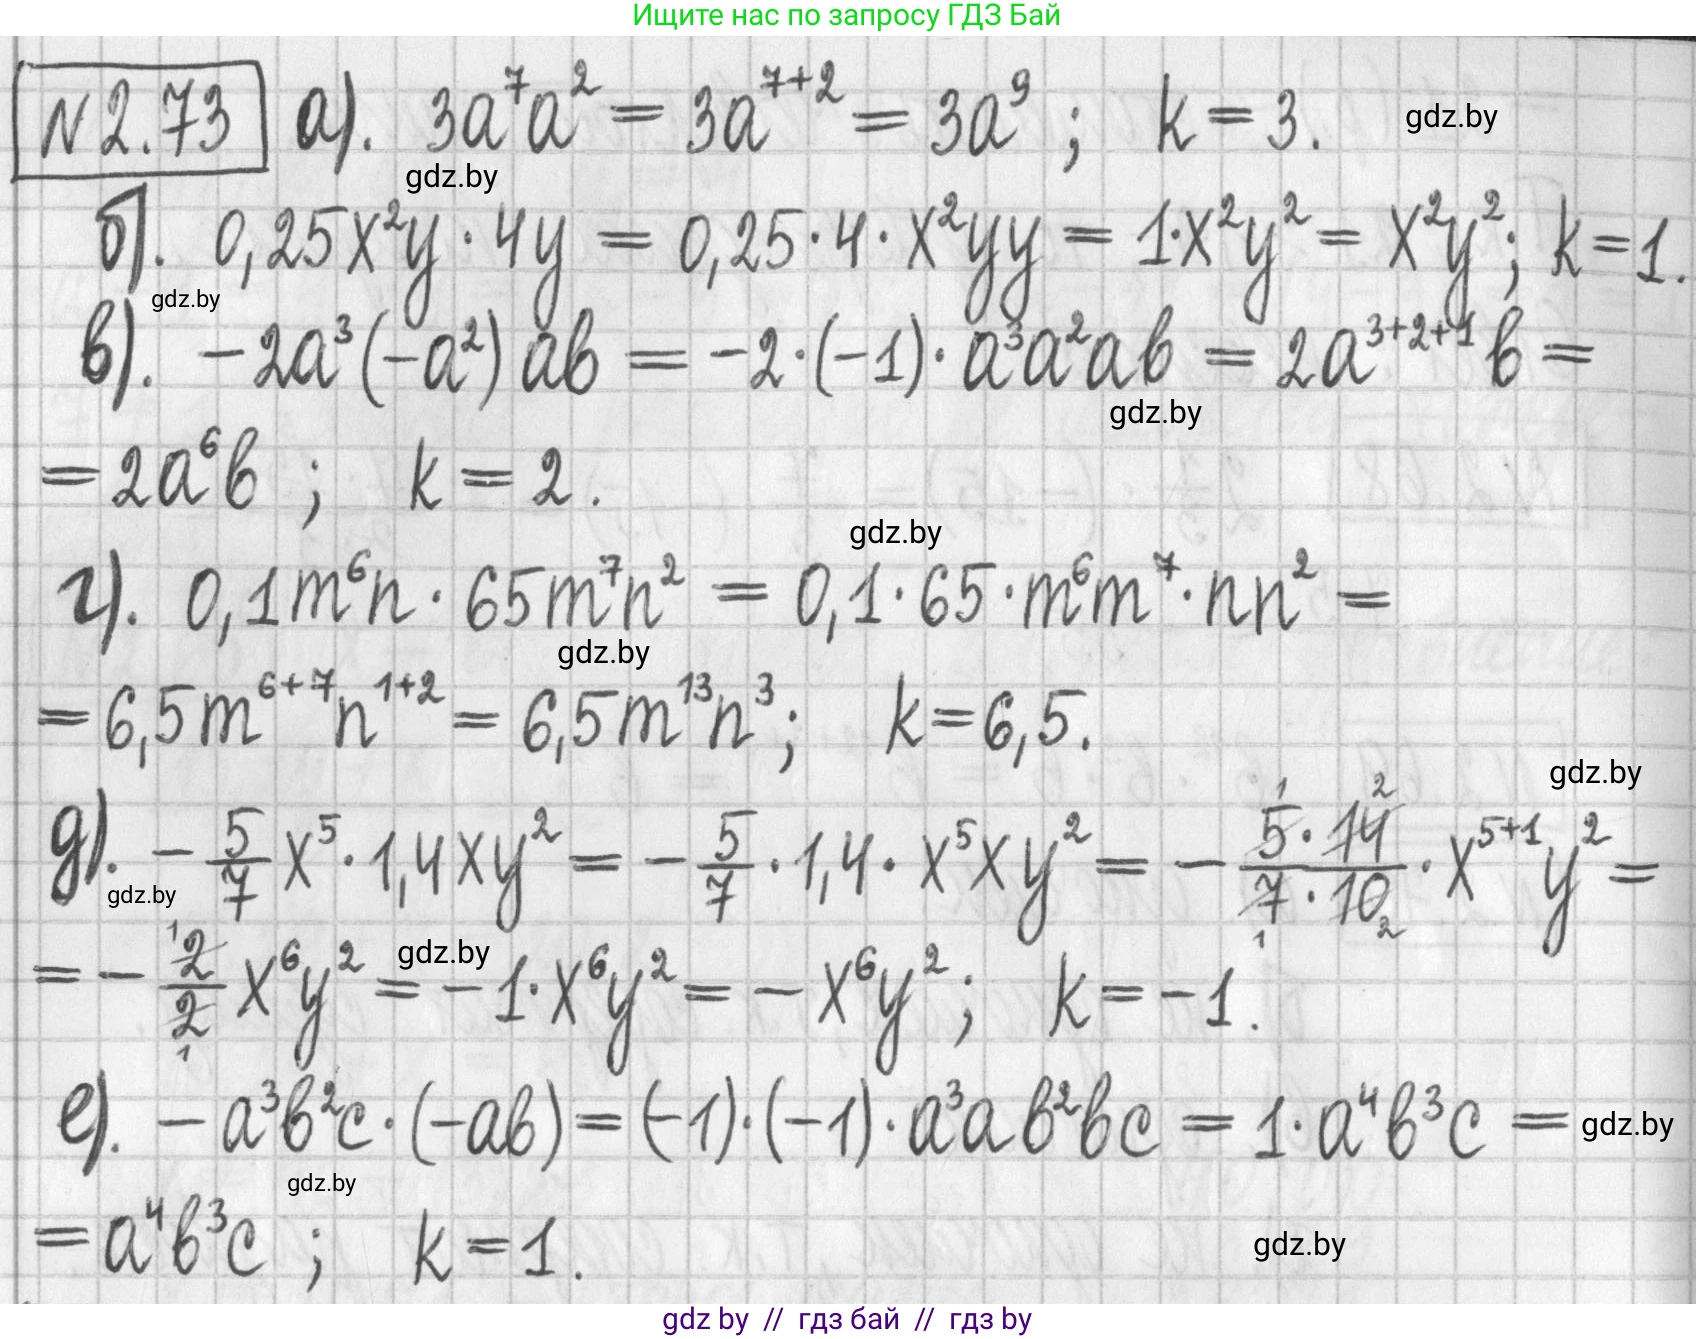 Ищите нас по запросу ГДЗ Бай
№2.73 а). 3a⁷a² = 3a⁷⁺² = 3a⁹ ; k = 3. gdz.by
gdz.by
б). 0,25x²y · 4y = 0,25 · 4 · x²yy = 1·x²y² = x²y²; k=1.
gdz.by
в). −2a³(−a²)ab = −2·(−1)·a³a²ab = 2a³⁺²⁺¹b =
gdz.by
= 2a⁶b ; k = 2.
gdz.by
г). 0,1m⁶n · 65m⁷n² = 0,1·65·m⁶m⁷·nn² =
gdz.by
= 6,5m⁶⁺⁷n¹⁺² = 6,5m¹³n³; k=6,5.
gdz.by
д). −5/7 x⁵·1,4xy² = −5/7 · 1,4 · x⁵xy² = − (5¹ · 14²)/(7₁ · 10₂) · x⁵⁺¹y² =
gdz.by
= − 2¹/2₁ x⁶y² = −1·x⁶y² = −x⁶y² ; k = −1.
gdz.by
е). −a³b²c·(−ab) = (−1)·(−1)·a³ab²bc = 1·a⁴b³c = gdz.by
gdz.by
= a⁴b³c ; k = 1.
gdz.by
gdz by // гдз бай // гдз by